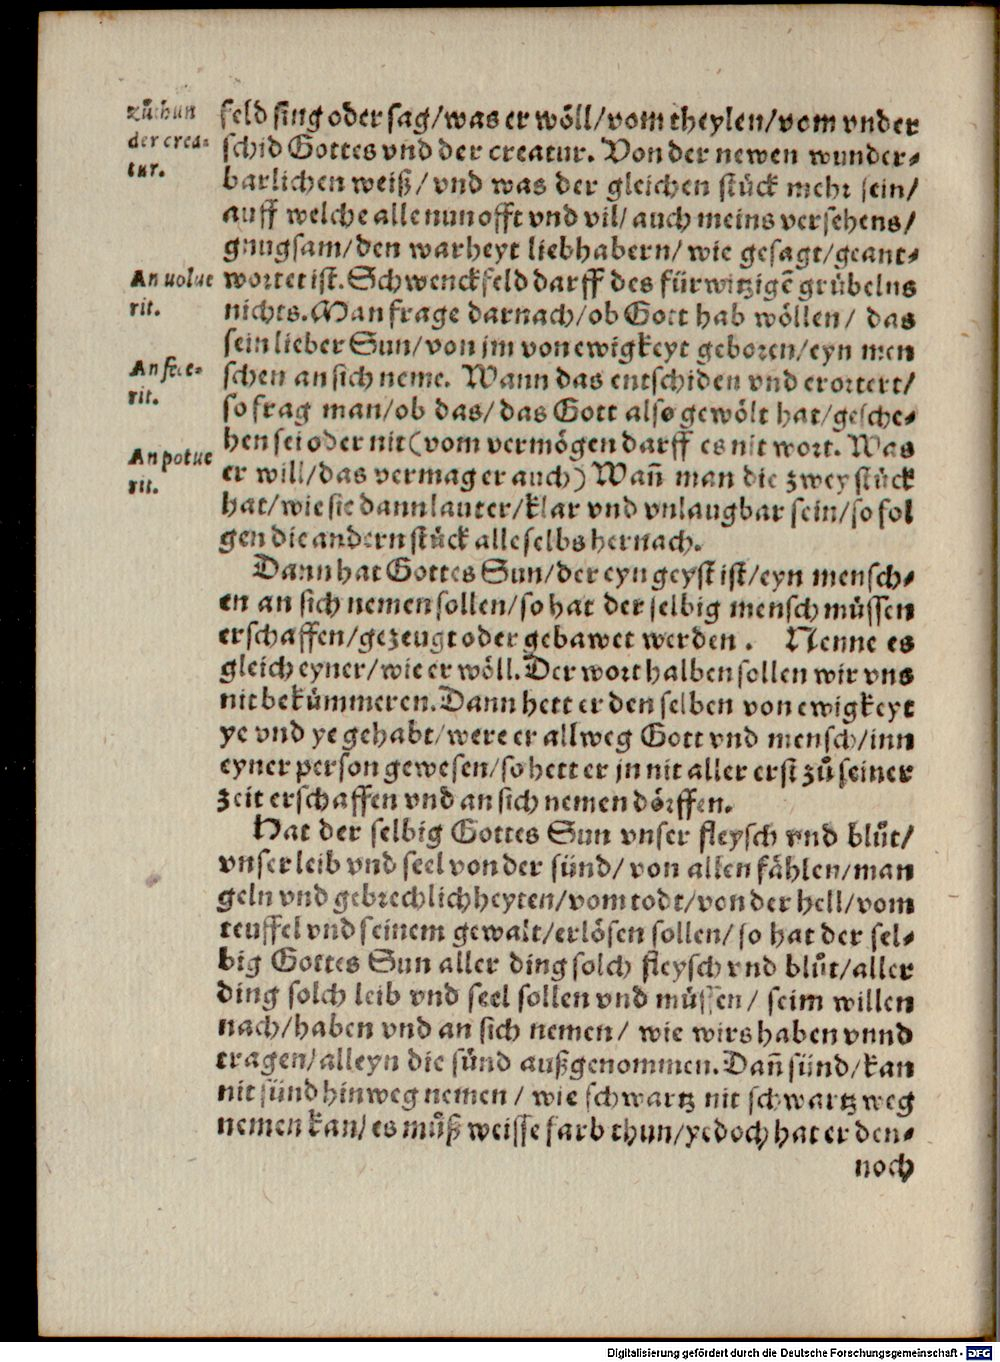 zů thun
der crea-
tur.
feld sing oder sag/was er wöll/vom theylen/vom vnder
schid Gottes vnd der creatur. Von der newen wunder-
barlichen weiß/vnd was der gleichen stück mehr sein/
auff welche alle nun offt vnd vil/auch meins versehens/
gnugsam/den warheyt liebhabern/wie gesagt/geant-
An uolue
rit.
wortet ist. Schwenckfeld darff des fürwitzigē grübelns
nichts. Man frage darnach/ob Gott hab wöllen/ das
sein lieber Sun/von jm von ewigkeyt geboren/eyn men
An fece-
rit.
schen an sich neme. Wann das entschiden vnd erortert/
so frag man/ob das/das Gott also gewölt hat/gesche-
hen sei oder nit (vom vermögen darff es nit wort. Was
An potue
rit.
er will/das vermag er auch) Wañ man die zwey stück
hat/wie sie dann lauter/klar vnd vnlaugbar sein/so fol
gen die andern stück alle selbs hernach.
Dann hat Gottes Sun/der eyn geyst ist/eyn mensch-
en an sich nemen sollen/so hat der selbig mensch müssen
erschaffen/gezeugt oder gebawet werden. Nenne es
gleich eyner/wie er wöll. Der wort halben sollen wir vns
nit bekümmeren. Dann hett er den selben von ewigkeyt
ye vnd ye gehabt/were er allweg Gott vnd mensch/inn
eyner person gewesen/so hett er jn nit aller erst zů seiner
zeit erschaffen vnd an sich nemen dörffen.
Hat der selbig Gottes Sun vnser fleysch vnd blůt/
vnser leib vnd seel von der sünd/ von allen fählen/man
geln vnd gebrechlichheyten/vom todt/von der hell/vom
teuffel vnd seinem gewalt/erlösen sollen/ so hat der sel-
big Gottes Sun aller ding solch fleysch vnd blůt/aller
ding solch leib vnd seel sollen vnd müssen/ seim willen
nach/haben vnd an sich nemen/ wie wirs haben vnnd
tragen/alleyn die sünd außgenommen. Dañ sünd/kan
nit sünd hinweg nemen/ wie schwartz nit schwartz weg
nemen kan/es můß weisse farb thun/yedoch hat er den-
noch
Digitalisierung gefördert durch die Deutsche Forschungsgemeinschaft - DFG